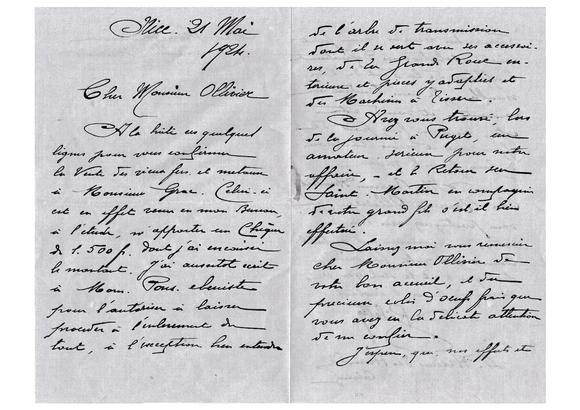 Nice. 21 Mai
1924.
Cher Monsieur Ollivier
A la hâte ces quelques
lignes pour vous confirmer
la Vente des vieux fers et métaux
à Monsieur Grac. Celui-ci
est en effet venu en mon Bureau,
à l'étude, m'apporter un Chèque
de 1.500 f. dont j'ai encaissé
le montant. J'ai aussitôt écrit
à Mons. Pons. ébéniste
pour l'autoriser à laisser
procéder à l'enlèvement du
tout, à l'exception bien entendu
de l'arbre de transmission
dont il se sert avec ses accessoi-
res, de la Grand Roue en-
térieure et pièces y adaptées et
des Machines à Tisser.
Avez vous trouvé, lors
de la journée à Puget, un
amateur sérieux pour notre
affaire, - et le Retour sur
Saint-Martin en compagnie
de votre grand fils s'est il bien
effectué.
Laissez moi vous remercier
cher Monsieur Ollivier de
votre bon accueil, et du
précieux colis d'oeufs frais que
vous avez eu la délicate attention
de me confier.
J'espère, que nos efforts et